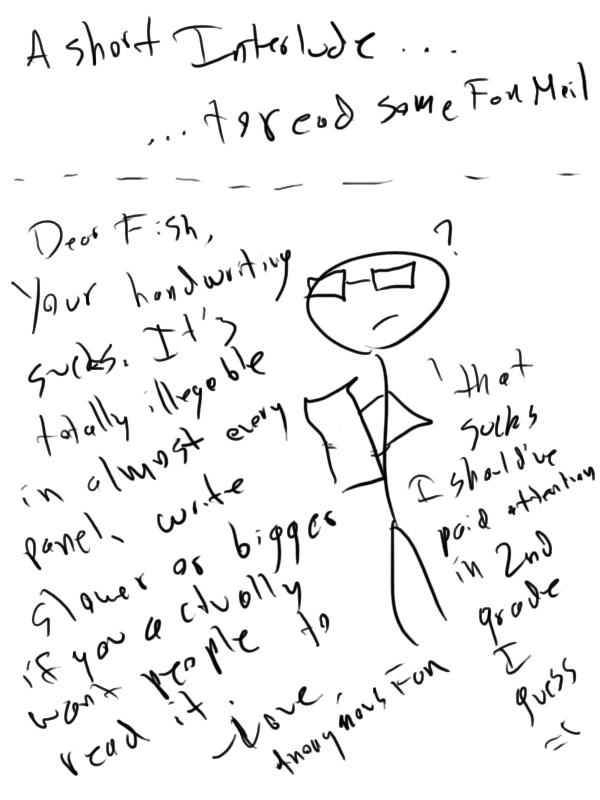 A short Interlude...
...to read some Fan Mail
Dear Fish,
Your handwriting
sucks. It's
totally illegable
in almost every
panel. write
slower or bigger
if you actually
want people to
read it.
-Love,
Anonymous Fan
?
that
sucks
I should've
paid attention
in 2nd
grade
I
guess
=(